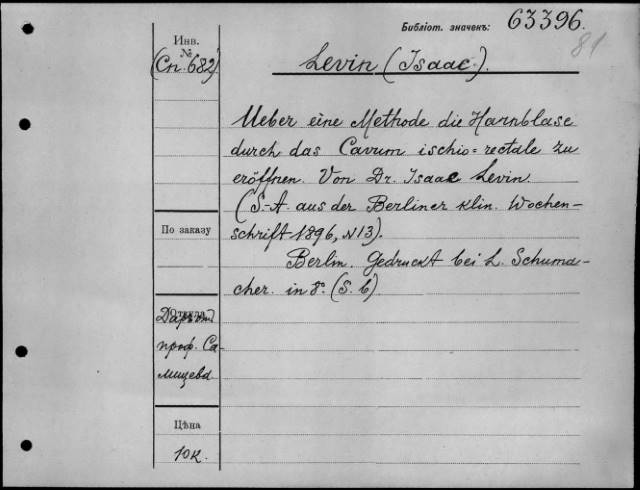 Библіот. значекъ: 63396.
81
Инв.
№
(Сп. 682)
Levin (Isaac.).
Ueber eine Methode die Harnblase
durch das Cavum ischio=rectale zu
eröffnen. Von Dr. Isaac Levin.
(S.-A. aus der Berliner klin. Wochen-
schrift 1896, N13).
По заказу
Berlin. Gedruckt bei L. Schuma-
cher. in 8°. (S. 6)
Откуда
Даръ
проф. Са-
мищева
Цѣна
10к.